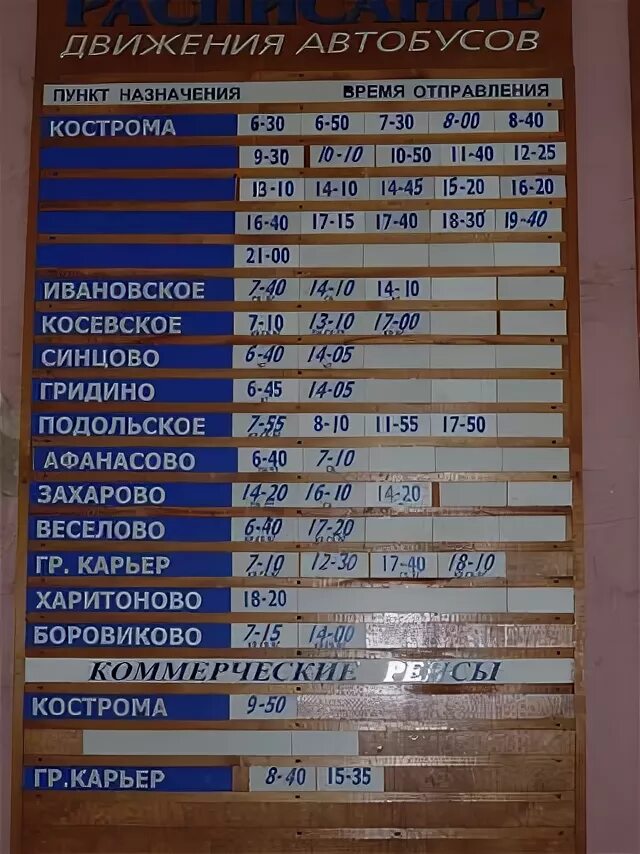 РАСПИСАНИЕ
ДВИЖЕНИЯ АВТОБУСОВ
ПУНКТ НАЗНАЧЕНИЯ ВРЕМЯ ОТПРАВЛЕНИЯ
КОСТРОМА 6-30 6-50 7-30 8-00 8-40
9-30 10-10 10-50 11-40 12-25
13-10 14-10 14-45 15-20 16-20
16-40 17-15 17-40 18-30 19-40
21-00
ИВАНОВСКОЕ 7-40 14-10 14-10
КОСЕВСКОЕ 7-10 13-10 17-00
СИНЦОВО 6-40 14-05
ГРИДИНО 6-45 14-05
ПОДОЛЬСКОЕ 7-55 8-10 11-55 17-50
АФАНАСОВО 6-40 7-10
ЗАХАРОВО 14-20 16-10 14-20
ВЕСЕЛОВО 6-40 17-20
ГР. КАРЬЕР 7-10 12-30 17-40 18-10
ХАРИТОНОВО 18-20
БОРОВИКОВО 7-15 14-00
КОММЕРЧЕСКИЕ РЕЙСЫ
КОСТРОМА 9-50
ГР.КАРЬЕР 8-40 15-35